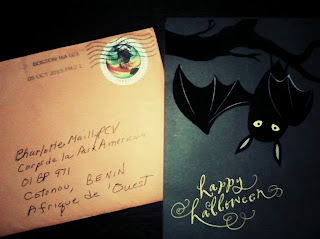 BOSTON MA 021
05 OCT 2013 PM 2 L
Charlotte Mailly, PCV
Corps de la Paix Americain
01 BP 971
Cotonou, BENIN
Afrique de l'Ouest
happy
halloween